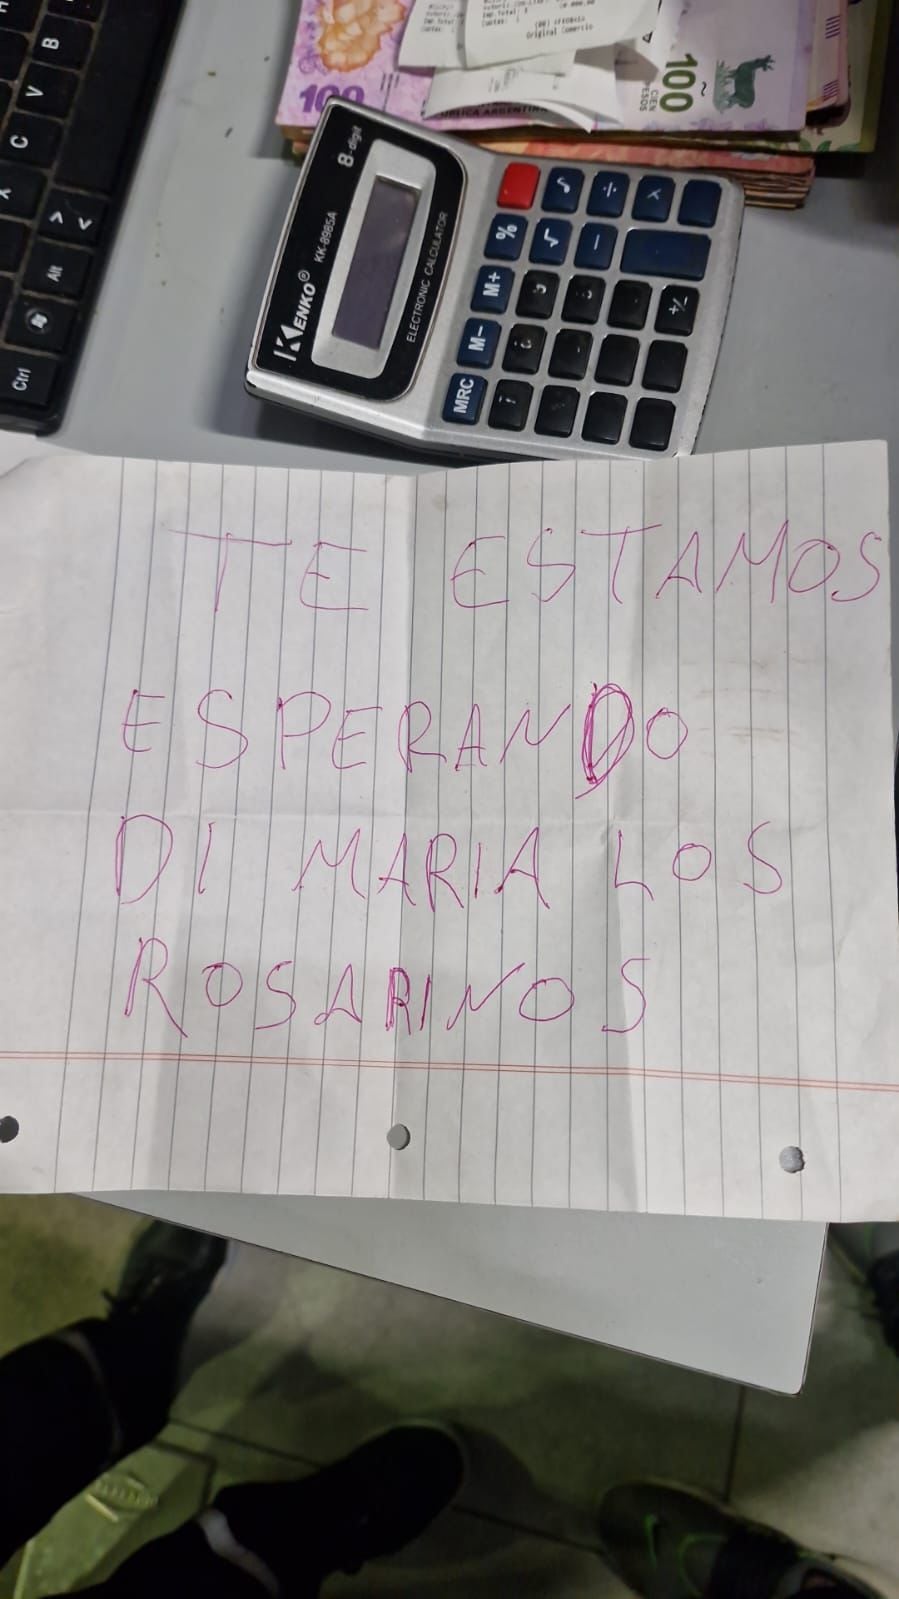 100
CIEN PESOS
100
REPUBLICA ARGENTINA
Original Comercio
B
V
C
X
> <
Alt
Ctrl
8-digit
KENKO® KK-8985A
ELECTRONIC CALCULATOR
√ ÷ x
% √ −
M+
M-
MRC
TE ESTAMOS
ESPERANDO
DI MARIA LOS
ROSARINOS